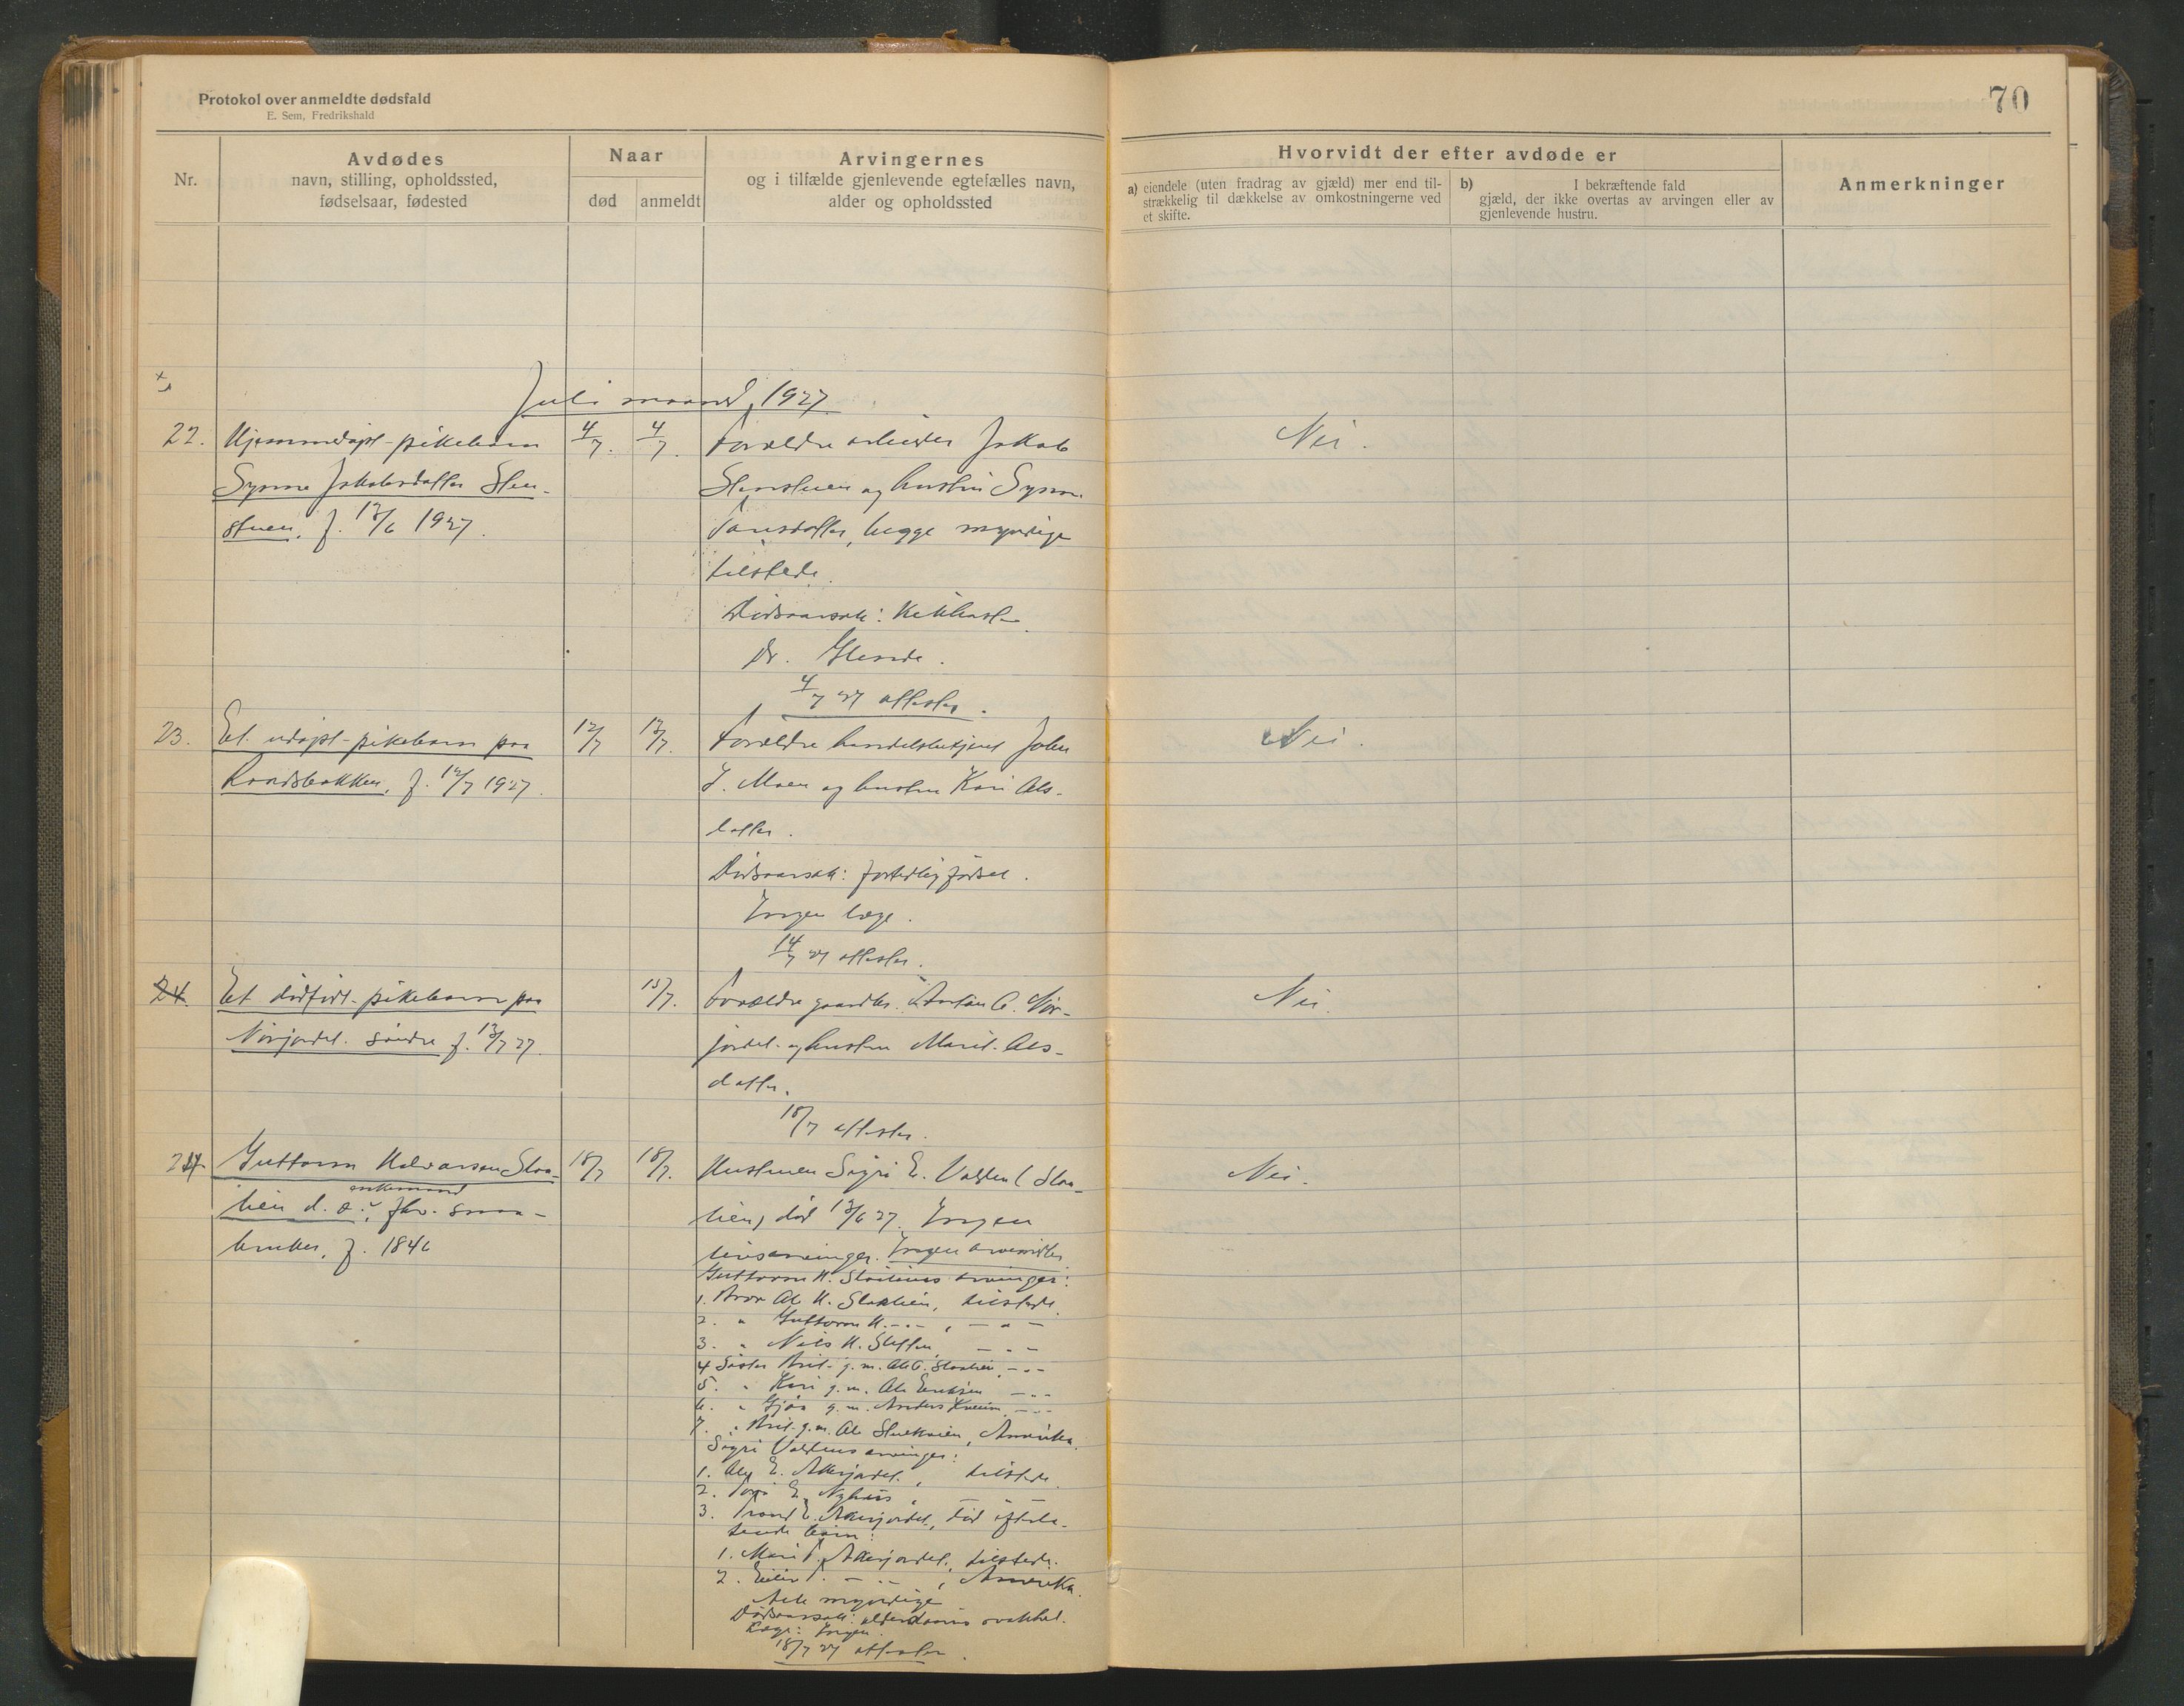 Protokol over anmeldte dødsfald
E. Sem, Fredrikshald
70
Nr.
Avdødes
navn, stilling, opholdssted,
fødselsaar, fødested
Naar
død
anmeldt
Arvingernes
og i tilfælde gjenlevende egtefælles navn,
alder og opholdssted
Hvorvidt der efter avdøde er
a) eiendele (uten fradrag av gjæld) mer end til-
strækkelig til dækkelse av omkostningerne ved
et skifte.
b) I bekræftende fald
gjæld, der ikke overtas av arvingen eller av
gjenlevende hustru.
Anmerkninger
Juli maaned 1927
22. Hjemmedøpt pikebarn
Synne Jakobsdatter Sten-
stuen, f. 13/6 1927.
4/7. 4/7.
Forældre arbeider Jakob
Stenstuen og hustru Synne
datter, begge myndige
tilstede.
Dødsaarsak: Kikhoste
Dr.
4/7 27 attester.
Nei.
23. Et udøpt pikebarn paa
Randsbakken, f. 12/7 1927.
12/7 13/7.
Forældre handelsbetjent John
J. Moen og hustru Kari Ols-
datter.
Dødsaarsak: fortidlig fødsel.
Ingen læge.
14/7 27 attester.
Nei.
24. Et dødfødt pikebarn paa
Nørjordet søndre f. 13/7 27.
15/7.
Forældre gaardbr. Anton O. Nør-
jordet og hustru Marit Ols-
datter.
18/7 attester.
Nei.
24. Guttorm Halvorsen Slaa-
enkemand
lien d. æ., fhv. smaa-
bruker, f. 1846
18/7 18/7.
Hustruen Sigri E. Valden (Slaa-
lien) død 13/6 27. Ingen
livsarvinger. Ingen arvemidler
Guttorm H. Slaaliens arvinger:
1. Bror Ole H. Slaalien, tilstede.
2. " Guttorm H. -"- , -"-
3. " Nils H. Sletten, -"-
4 Søster Brit g. m. Ole O. Slaalien, -"-
5. " Kari g. m. Ole Eriksen -"-
6. " Gjøa g. m. Anders Kveim, -"-
7. " Brit g. m. Ole , Amerika.
Sigri Valdens arvinger:
1. Ole E. Akerjordet, tilstede.
2. E. Nyhus, - " -
3. Trond E. Akerjordet, død efterla-
tende barn:
1. Mari T. Akerjordet, tilstede.
2. T. - " - , Amerika.
Alle myndige
Dødsaarsak: alderdoms svakhet.
Læge: Ingen.
18/7 27 attester.
Nei.